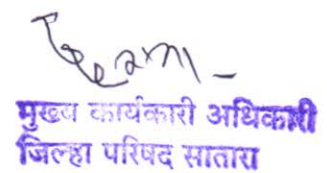 मुख्य कार्यकारी अधिकारी
जिल्हा परिषद सातारा